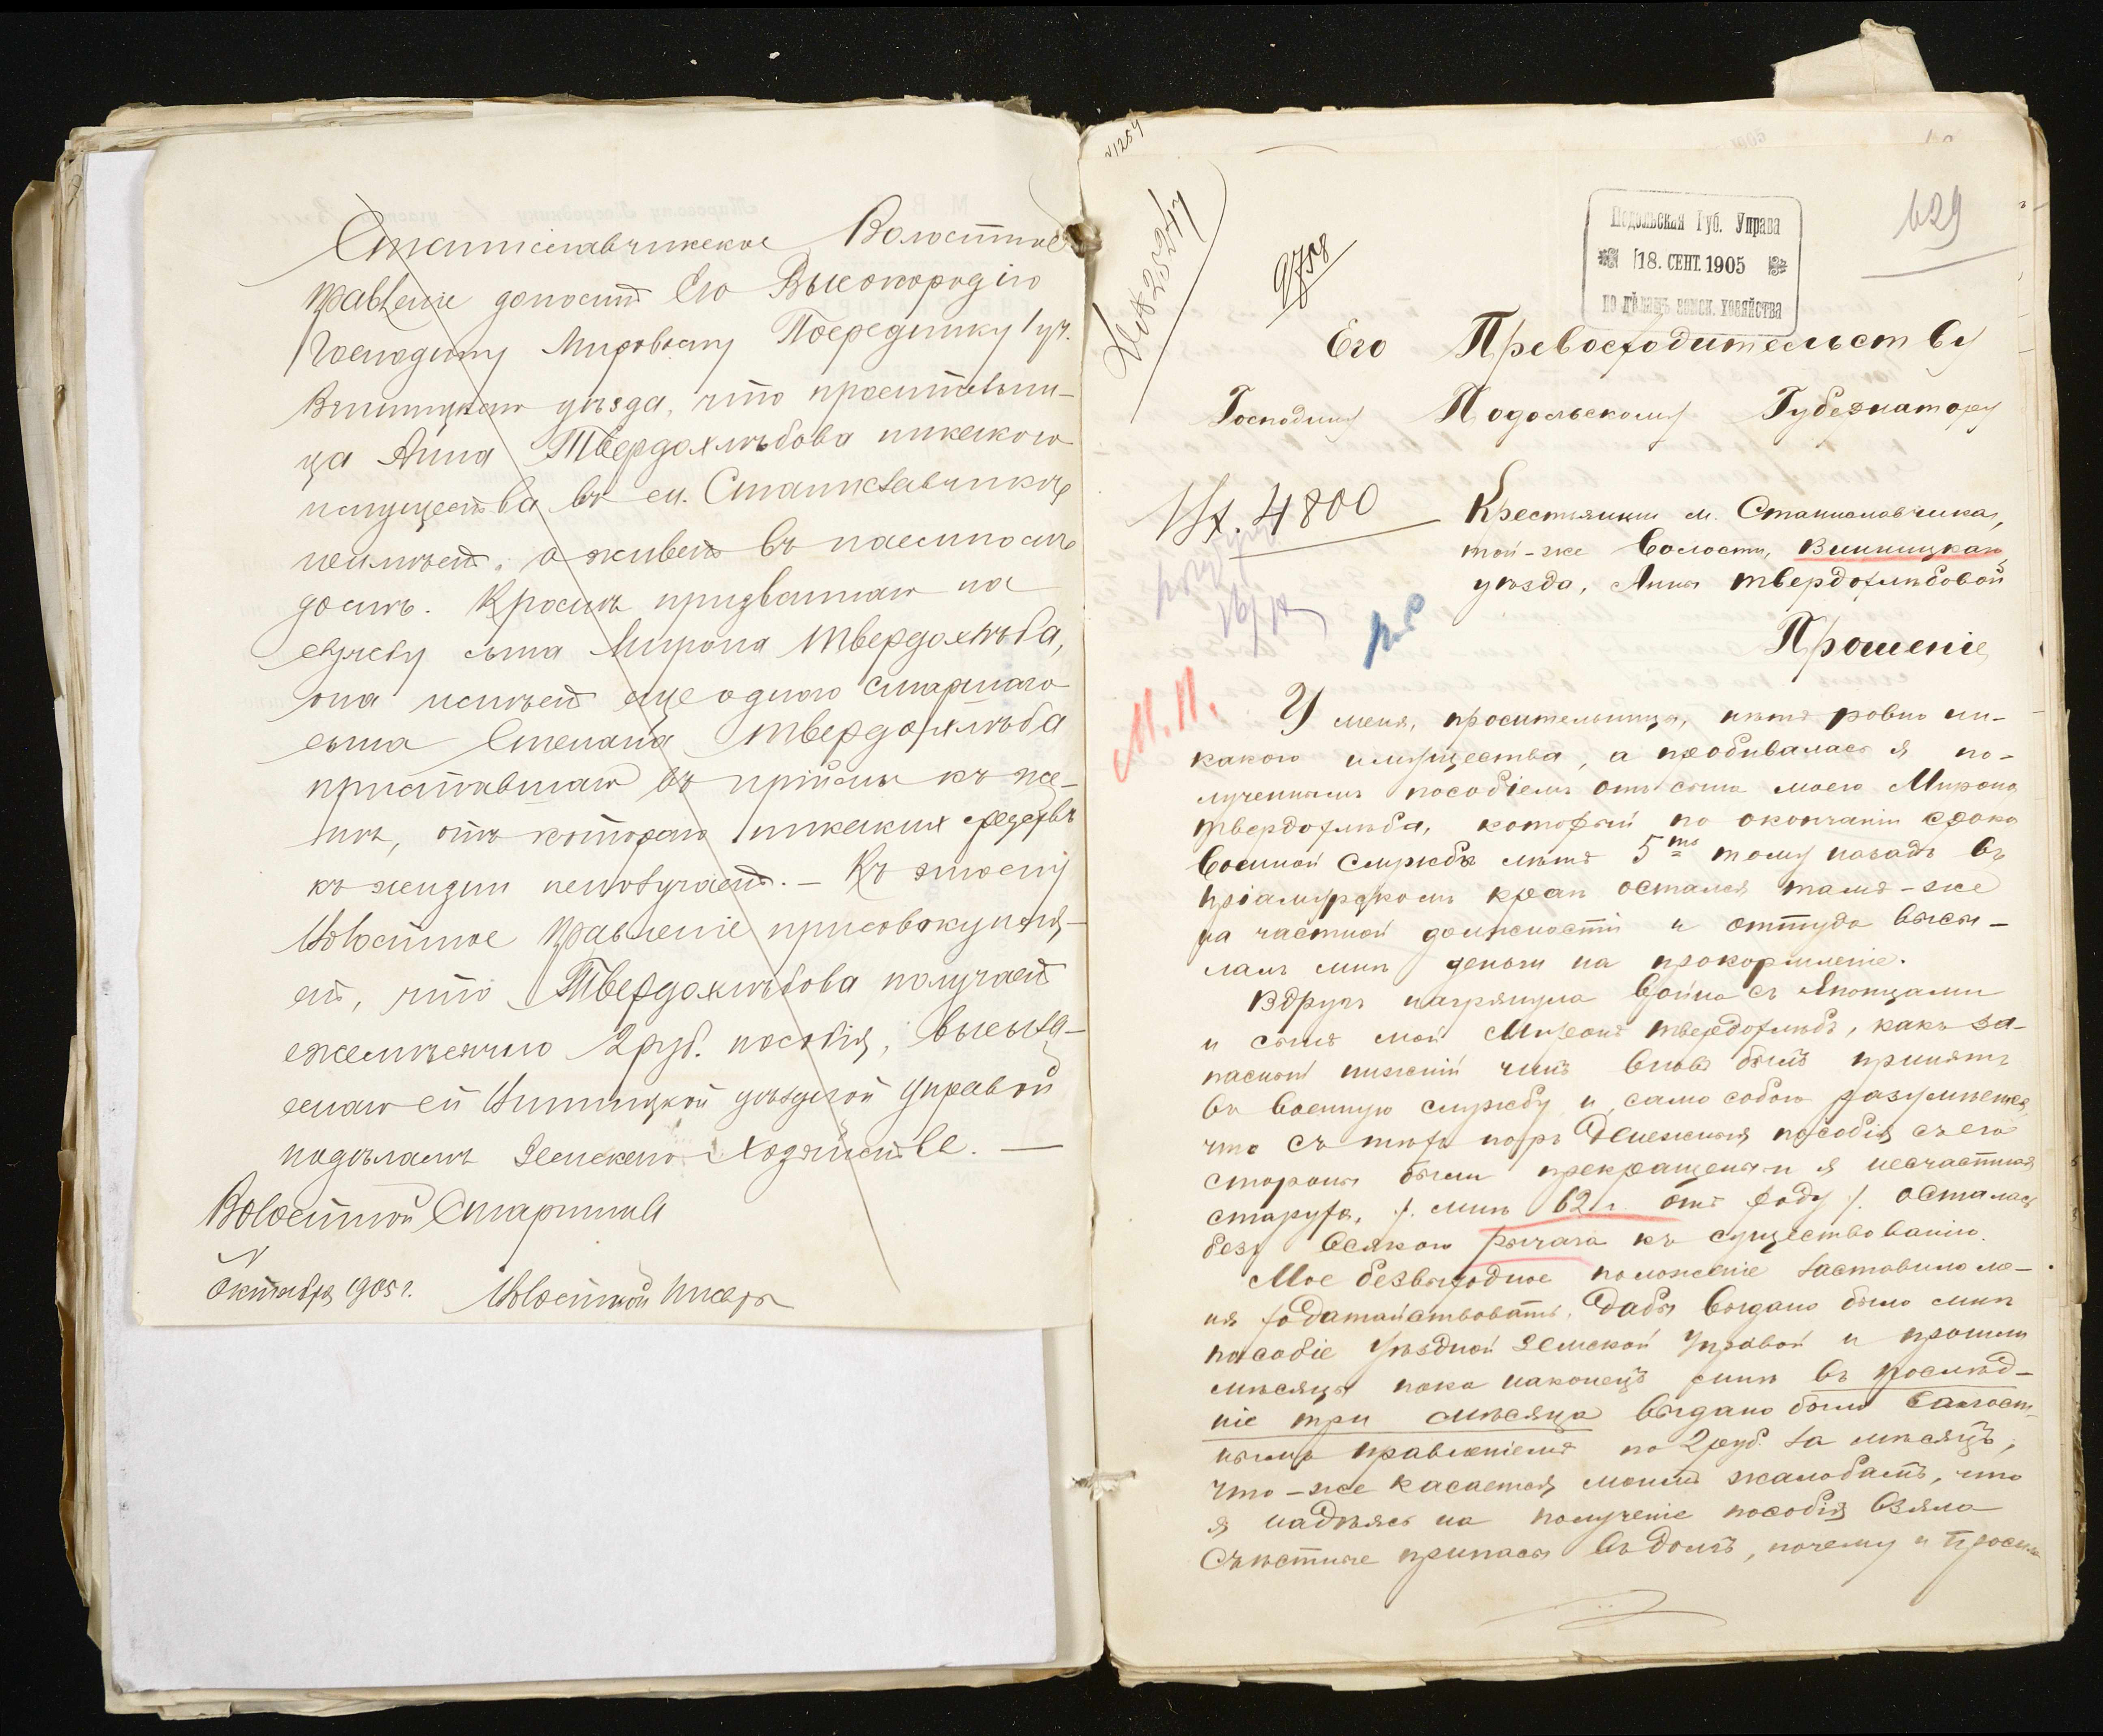 Станиславчикское Волостное
Правленіе доноситъ Его Высокородію
Господину Мировому Посреднику 1 уч.
Винницкаго уѣзда, что просительни-
ца Анна Твердохлѣбова никакого
имущества въ м. Станиславчикѣ
неимѣетъ, а живетъ въ наемномъ
домѣ. Кромѣ призваннаго на
службу сына Мирона Твердохлѣба,
она имѣетъ еще одного старшаго
сына Степана Твердохлѣба
приставшаго въ приймы къ же-
нѣ, отъ котораго никакихъ средствъ
къ жизни неполучаетъ. — Къ этому
Волостное Правленіе присовокупля-
етъ, что Твердохлѣбова получаетъ
ежемѣсячно 2 руб. пособія, высыла-
емаго ей Винницкой уѣздной Управой
подѣламъ Земскаго Хозяйства. —
Волостной Старшина
Октября 1905 г. Волостной Писарь
№1254
629
Подольская Губ. Управа
18. СЕНТ. 1905
по дѣламъ земск. хозяйства
Его Превосходительству
Господину Подольскому Губернатору
4800
Крестьянки м. Станиславчика,
той-же волости, Винницкаго
уѣзда, Анны Твердохлѣбовой
Прошеніе
М. П.
У меня, просительницы, нѣтъ ровно ни-
какого имущества, а пробивалась я по-
лученнымъ пособіемъ отъ сына моего Мирона
Твердохлѣба, который по окончаніи срока
военной службы лѣтъ 5ть тому назадъ въ
Пріамурскомъ краѣ остался тамъ-же
на частной должности и оттуда высы-
лалъ мнѣ деньги на прокормленіе.
Вдругъ нагрянула война съ Японцами
и сынъ мой Миронъ Твердохлѣбъ, какъ за-
пасный нижній чинъ вновь былъ принятъ
въ военную службу и само собою разумѣется,
что съ тѣхъ поръ денежныя пособія съ его
стороны были прекращены и я несчастная
старуха, /. мнѣ 62 г. отъ роду /. осталась
безъ всякаго рычага къ существованію.
Мое безвыходное положеніе заставило ме-
ня ходатайствовать, дабы выдано было мнѣ
пособіе Уѣздной Земской Управой и прошли
мѣсяцы пока наконецъ мнѣ въ послѣд-
ніе три мѣсяца выдано было Волост-
нымъ правленіемъ по 2 руб. за мѣсяцъ,
что-же касается моимъ жалобамъ, что
я надѣясь на полученіе пособія взяла
Съѣстные припасы въ домъ, почему и просила